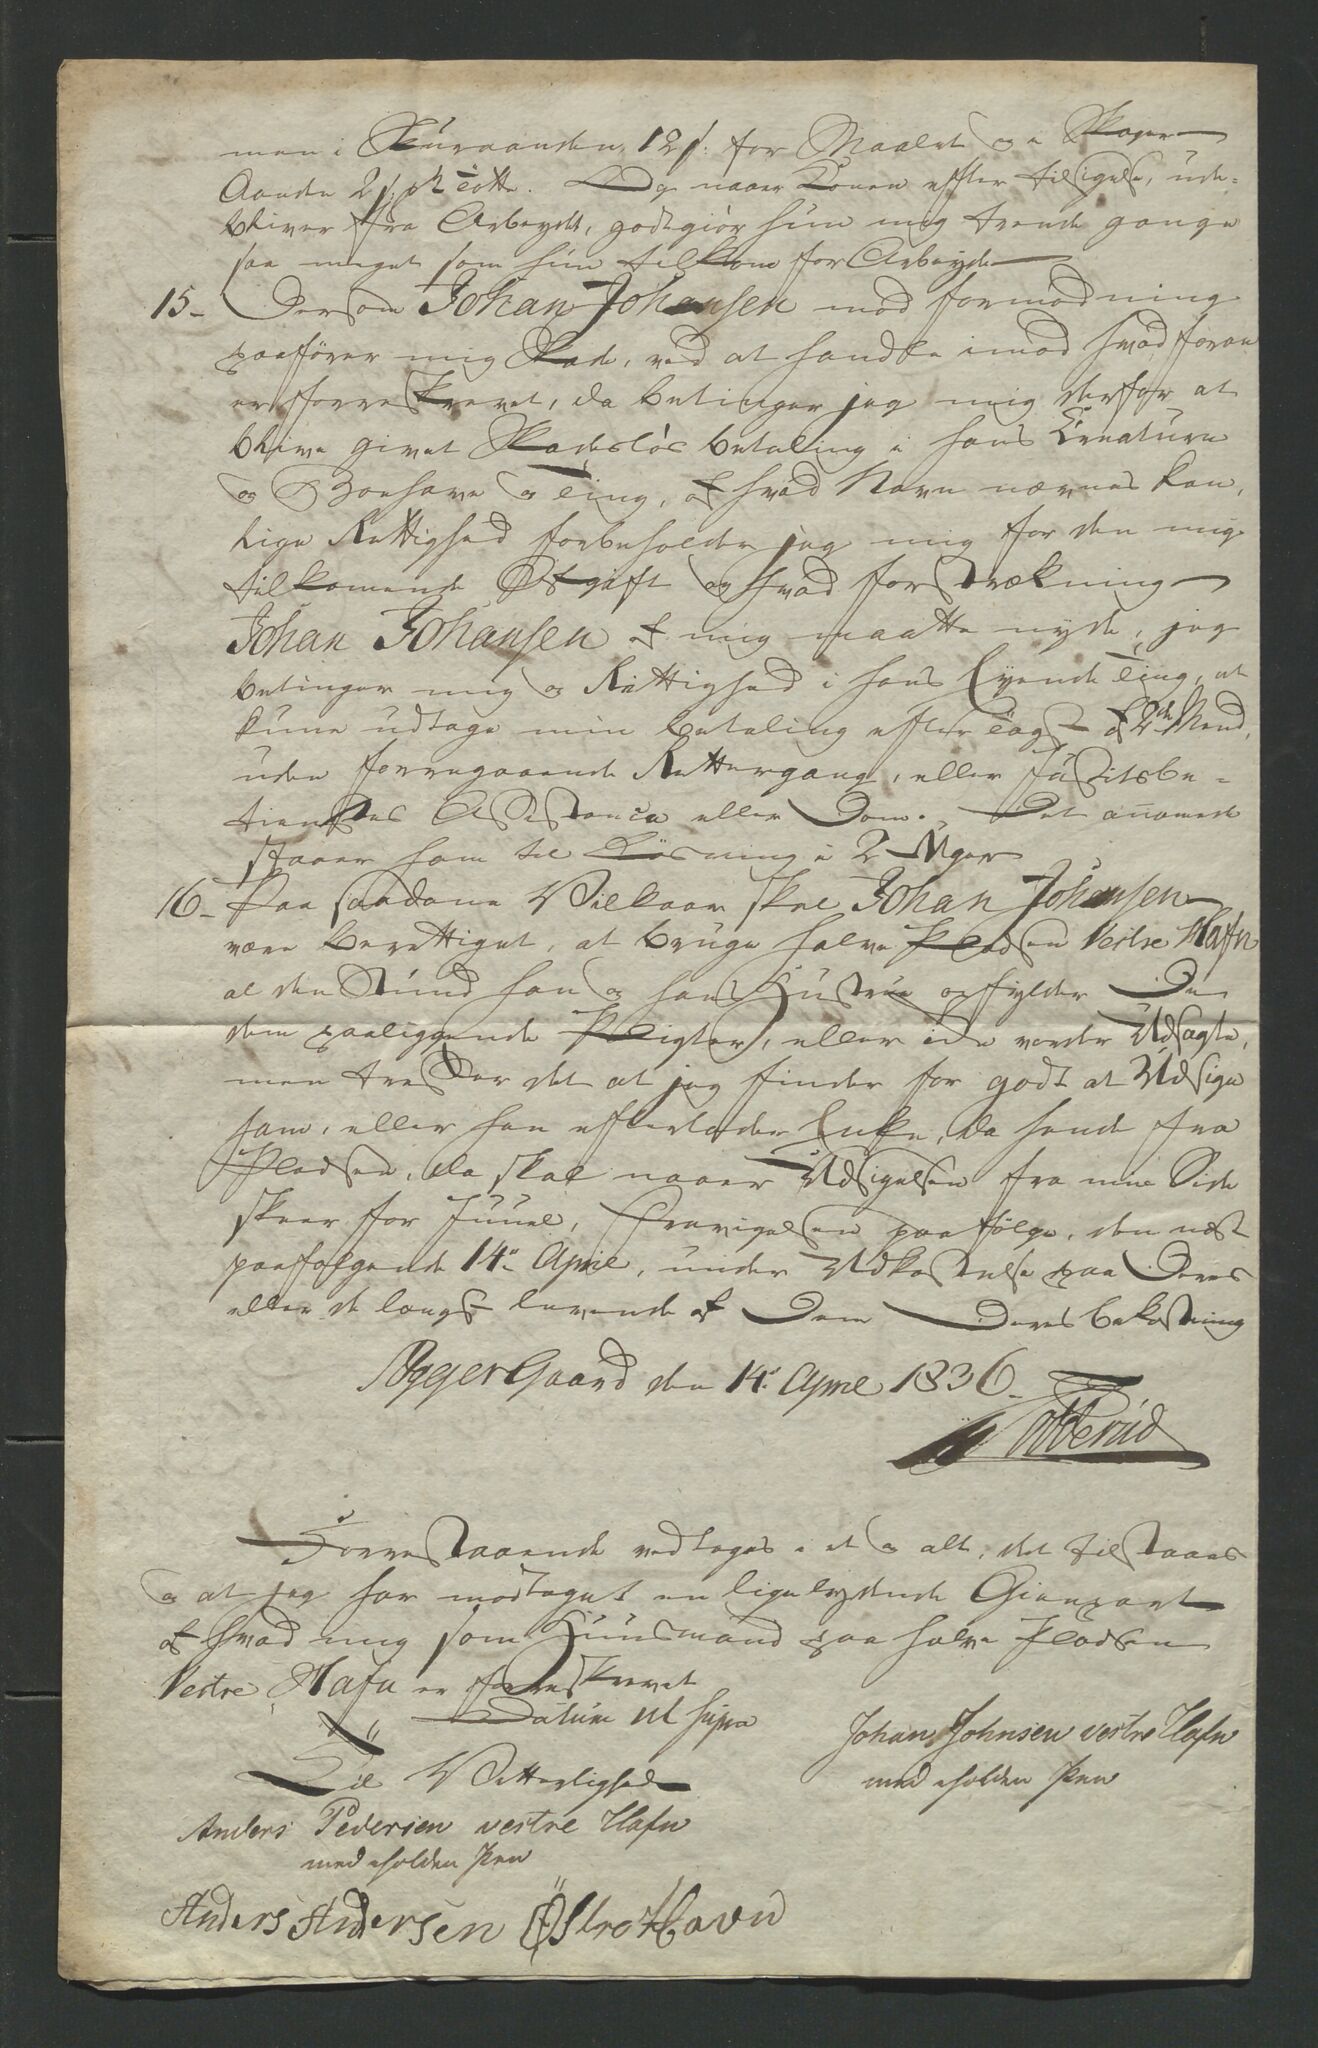 men i Skuraanden 12 s. for Maalet og i Skager
Aanda 2 s. pr Totte. Og naar Konen efter tilsigelse, ude-
bliver fra Arbeydet, godtgiør hun mig trende gange
saa meget som hun tilkom for Arbeyde
15- Dersom Johan Johansen mod formodning
paafører mig Skade, ved at handle imod hvad foran
er forreskrevet, da betinger jeg mig derfor at
blive givet Skadesløs betaling i hans Creature
og Boehave og Ting, af hvad Navn nævnes kan,
lige Rettighed forbeholder jeg mig for den mig
tilkomende Afgift og hvad forstrækning
Johan Johansen af mig maatte nyde, jeg
betinger mig og Rettighed i hans Eyende Ting, at
kune udtage min betaling efter Tagst af 2de Mend,
uden forregaaende Rettergang, eller Justitsbe-
tientes Assistance eller Dom. Det anamede
staaer ham til Løsning i 2 Uger
16- Paa saadane Vilkaar skal Johan Johansen
være berettiget, at bruge halve Pladsen Vestre Hafn
al den Stund han og hans Hustrue opfylder De
dem paaliggende Pligter, eller ide vorder Udsagte,
men træffer det at jeg finder for godt at Udsige
ham, eller han efterlader Enke, da hende fra
Pladsen, da skal naar Udsigelsen fra min Side
skeer for Juuel, Fravigelsen paafølge, den næst
paafølgende 14de April, under Udkastelse paa Deres
eller de længst levende af Dem Deres bekostning
AggerGaard den 14de April 1836.
Forrestaaende vedtages i et og alt, det tilstaaes
og at jeg har modtaget en ligelydende Gienpart
af hvad mig som Huusmand paa halve Pladsen
Vestre Hafn er forreskrevet
Datum ut supra
Johan Johnsen vestre Hafn
med eholden Pen
Til Vitterlighed
Anders Pedersen vestre Hafn
med eholden Pen
Anders Andersen Østre Havn